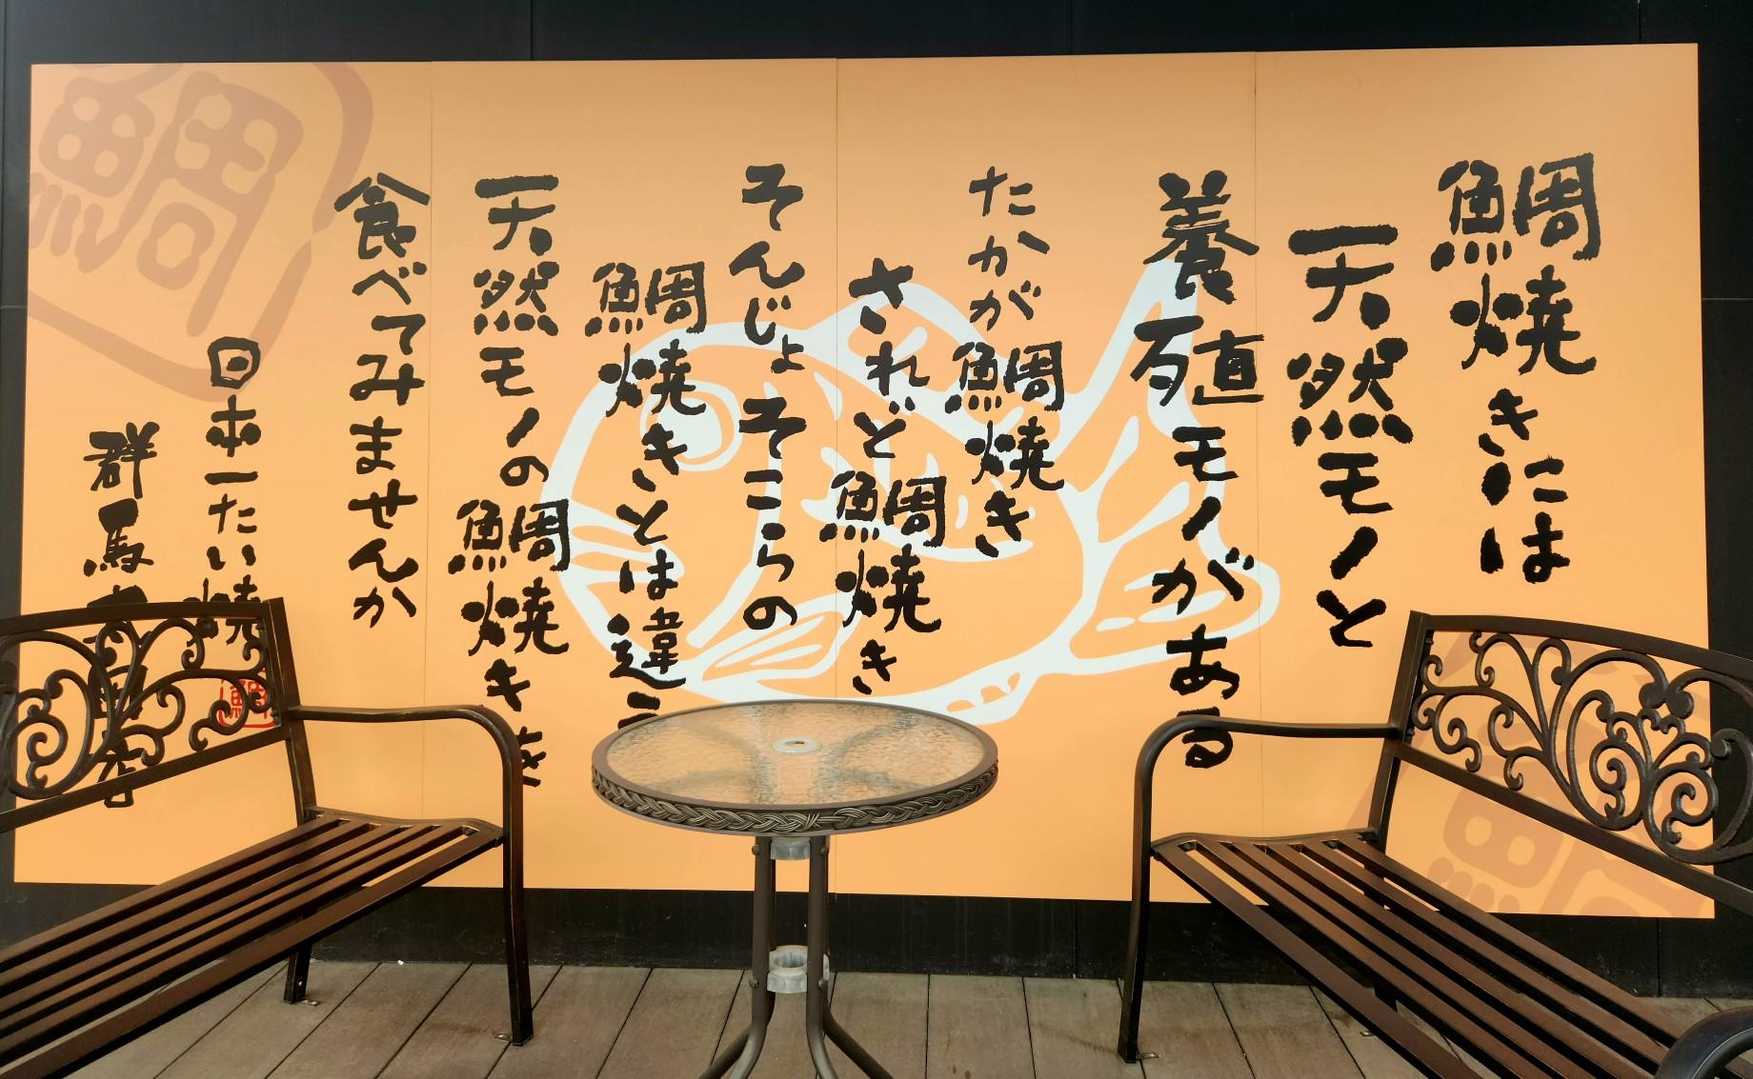 鯛焼きには
天然モノと
養殖モノがある
たかが鯛焼き
されど鯛焼き
そんじょそこらの
鯛焼きとは違う
天然モノの鯛焼きを
食べてみませんか
日本一たい焼
群馬
鯛
鯛